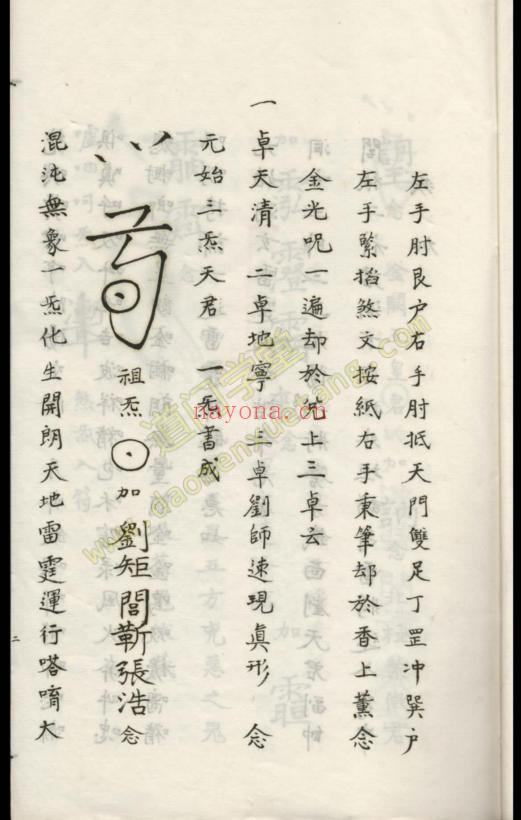 左手肘艮户右手肘抵天門雙足丁罡冲巽户
左手緊掐煞文按紙右手柬筆却於香上薰念
金光呪一遍却於上三卓云
一卓天清二卓地寧三卓劉師速現眞形 念
元始三炁天君 一旡書成
祖炁 加 劉矩閻蘄張浩念
混沌無象一炁化生開朗天地雷霆運行嗒唷大
二
道门学堂
nayona.cn
www.daomenxuetang.com